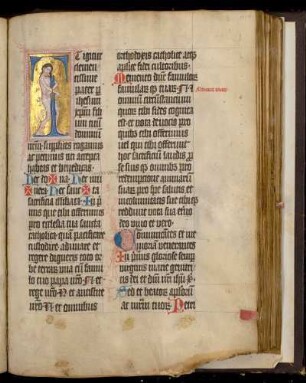 E igitur
clemen
tissime
pater p
ihesum
xpm fili
um tuu
dominu
nrm supplices rogamus
ac petimus uti accepta
habeas et benedicas
hec do na hec mu
nera hec sancta
sacrificia illibata In p
mis que tibi offerimus
pro ecclesia tua sancta
catholica quā pacificare
custodire adunare et
regere digneris toto or
be terrarū una cū famu
lo tuo papa nrō N et
rege nrō N et antistite
nrō N et omnibus
orthodoxis catholice atqz
aplice fidei cultoribus
Memento dne famuloꝝ
famulaꝝ qz tuaꝝ N
omnium circumstantium
quoꝝ tibi fides cognita
est et nota deuotio pro
quibs tibi offerimus
uel qui tibi offerunt
hoc sacrificium laudis p
se suis qz omnibs pro
redemptione animaꝝ
suaꝝ pro spe salutis et
incolumitatis sue tibi qz
reddunt uota sua eterno
deo uiuo et uero
Communicantes et me
moriam uenerantes
In primis gloriose semp
uirginis marie genitri
cis dei et dni nri ihu xpi
Sed et beatoꝝ aploꝝ
ac martirū tuoꝝ Petri